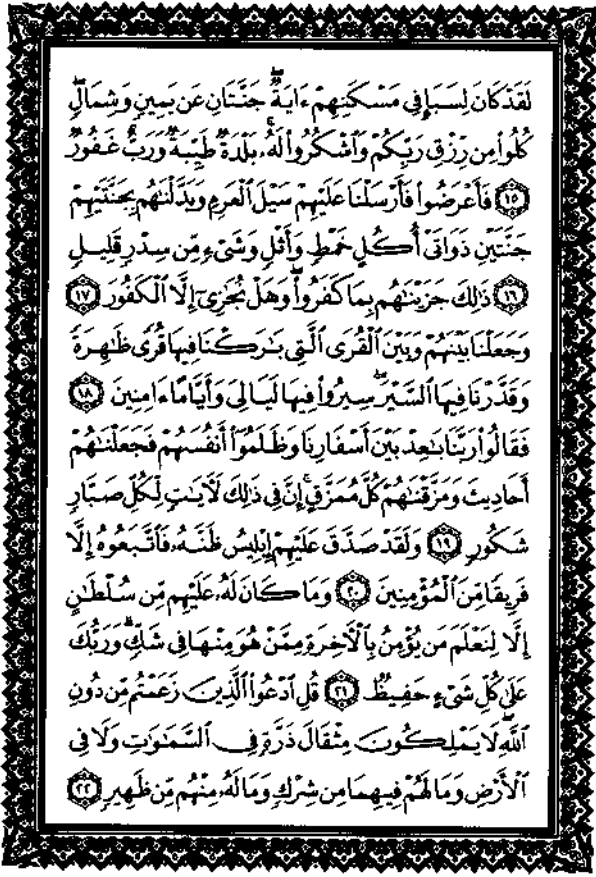 لَقَدْ كَانَ لِسَبَإٍ فِى مَسْكَنِهِمْ ءَايَةٌ ۖ جَنَّتَانِ عَن يَمِينٍ وَشِمَالٍ ۖ
كُلُوا۟ مِن رِّزْقِ رَبِّكُمْ وَٱشْكُرُوا۟ لَهُۥ ۚ بَلْدَةٌ طَيِّبَةٌ وَرَبٌّ غَفُورٌ
﴿١٥﴾ فَأَعْرَضُوا۟ فَأَرْسَلْنَا عَلَيْهِمْ سَيْلَ ٱلْعَرِمِ وَبَدَّلْنَٰهُم بِجَنَّتَيْهِمْ
جَنَّتَيْنِ ذَوَاتَىْ أُكُلٍ خَمْطٍ وَأَثْلٍ وَشَىْءٍ مِّن سِدْرٍ قَلِيلٍ
﴿١٦﴾ ذَٰلِكَ جَزَيْنَٰهُم بِمَا كَفَرُوا۟ ۖ وَهَلْ نُجَٰزِىٓ إِلَّا ٱلْكَفُورَ ﴿١٧﴾
وَجَعَلْنَا بَيْنَهُمْ وَبَيْنَ ٱلْقُرَى ٱلَّتِى بَٰرَكْنَا فِيهَا قُرًى ظَٰهِرَةً
وَقَدَّرْنَا فِيهَا ٱلسَّيْرَ ۖ سِيرُوا۟ فِيهَا لَيَالِىَ وَأَيَّامًا ءَامِنِينَ ﴿١٨﴾
فَقَالُوا۟ رَبَّنَا بَٰعِدْ بَيْنَ أَسْفَارِنَا وَظَلَمُوٓا۟ أَنفُسَهُمْ فَجَعَلْنَٰهُمْ
أَحَادِيثَ وَمَزَّقْنَٰهُمْ كُلَّ مُمَزَّقٍ ۚ إِنَّ فِى ذَٰلِكَ لَءَايَٰتٍ لِّكُلِّ صَبَّارٍ
شَكُورٍ ﴿١٩﴾ وَلَقَدْ صَدَّقَ عَلَيْهِمْ إِبْلِيسُ ظَنَّهُۥ فَٱتَّبَعُوهُ إِلَّا
فَرِيقًا مِّنَ ٱلْمُؤْمِنِينَ ﴿٢٠﴾ وَمَا كَانَ لَهُۥ عَلَيْهِم مِّن سُلْطَٰنٍ
إِلَّا لِنَعْلَمَ مَن يُؤْمِنُ بِٱلْءَاخِرَةِ مِمَّنْ هُوَ مِنْهَا فِى شَكٍّ ۗ وَرَبُّكَ
عَلَىٰ كُلِّ شَىْءٍ حَفِيظٌ ﴿٢١﴾ قُلِ ٱدْعُوا۟ ٱلَّذِينَ زَعَمْتُم مِّن دُونِ
ٱللَّهِ ۖ لَا يَمْلِكُونَ مِثْقَالَ ذَرَّةٍ فِى ٱلسَّمَٰوَٰتِ وَلَا فِى
ٱلْأَرْضِ وَمَا لَهُمْ فِيهِمَا مِن شِرْكٍ وَمَا لَهُۥ مِنْهُم مِّن ظَهِيرٍ ﴿٢٢﴾